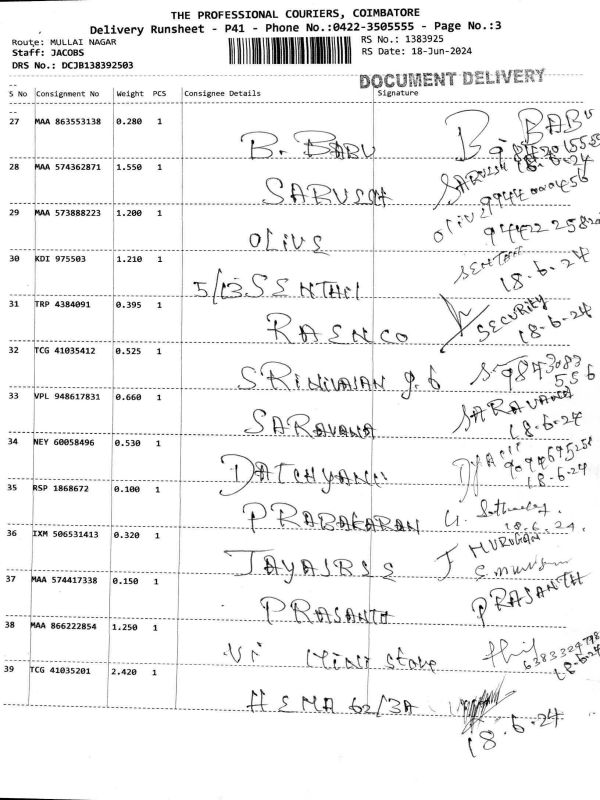 THE PROFESSIONAL COURIERS, COIMBATORE
Delivery Runsheet - P41 - Phone No.:0422-3505555 - Page No.:3
Route: MULLAI NAGAR RS No.: 1383925
Staff: JACOBS RS Date: 18-Jun-2024
DRS No.: DCJB138392503
DOCUMENT DELIVERY
S No Consignment No Weight PCS Consignee Details Signature
27 MAA 863553138 0.280 1
B. BABU B. BABU
28 MAA 574362871 1.550 1 18-6-24
9944000456
29 MAA 573888223 1.200 1 OLIVE
OLIVE
30 KDI 975503 1.210 1
18-6-24
5/13 SENTHIL
31 TRP 4384091 0.395 1 SECURITY
RAENCO 18-6-24
32 TCG 41035412 0.525 1
556
33 VPL 948617831 0.660 1 SARAVANA
SARAVANA 18-6-24
34 NEY 60058496 0.530 1
18-6-24
35 RSP 1868672 0.100 1
PRABAKARAN
18.6.24.
36 IXM 506531413 0.320 1 MURUGAN
37 MAA 574417338 0.150 1
PRASANTH PRASANTH
38 MAA 866222854 1.250 1
VI MINI Store
18-6-24
39 TCG 41035201 2.420 1
HEMA 62/3A
18-6-24